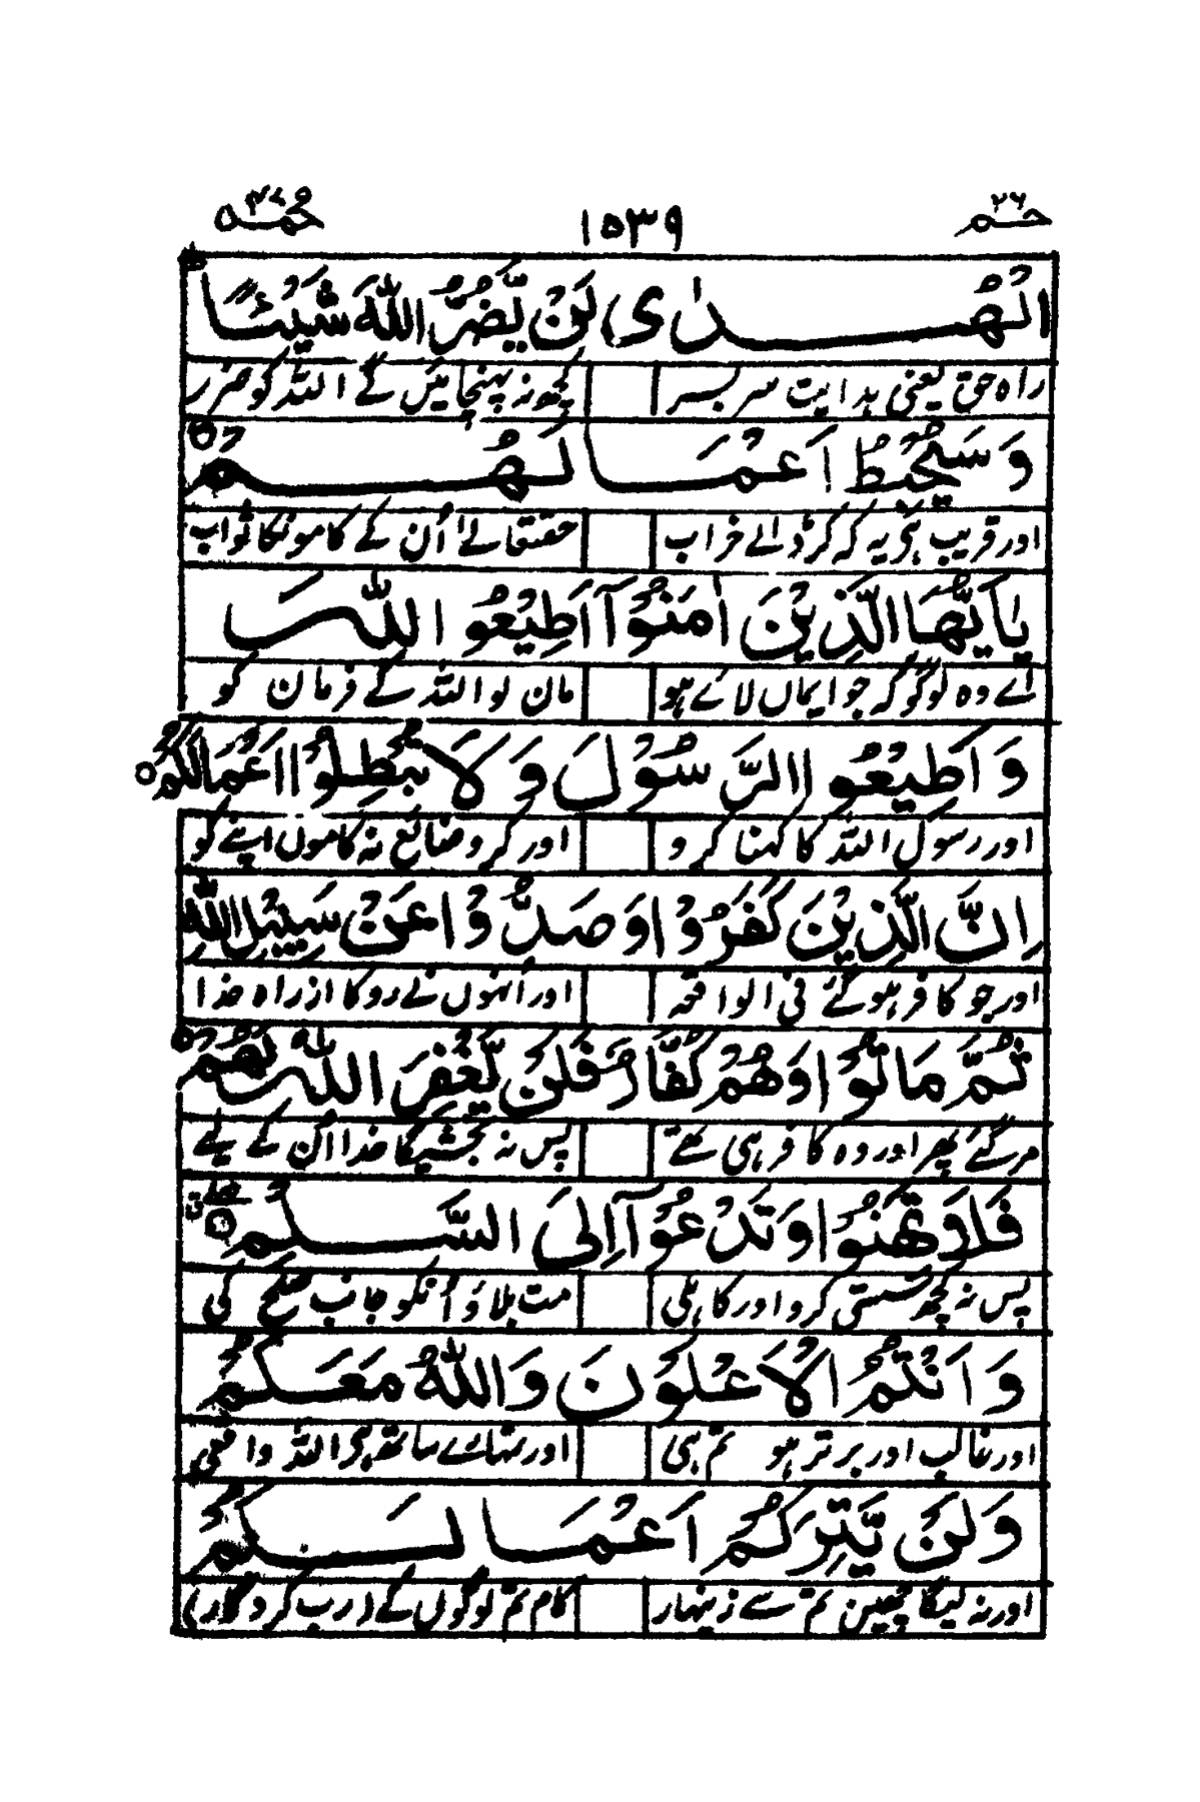 حٰمٓ ٢٦ ١٥٣٩ محمد ٤٧
الْهُدٰى لَنْ يَّضُرُّ اللّٰهَ شَيْـًٔا
راہ حق یعنی ہدایت سر بسر کچھ نہ پہنچائیں گے اللہ کو ضرر
وَسَيُحْبِطُ اَعْمَالَهُمْ
اور قریب ہی یہ کہ کر ڈالے خراب حقتعالےٰ اُن کے کامونکا ثواب
يٰاَيُّهَا الَّذِيْنَ اٰمَنُوْٓا اَطِيْعُوا اللّٰهَ
اے وہ لوگو کہ جو ایماں لائے ہو مان لو اللہ کے فرمان کو
وَاَطِيْعُوا الرَّسُوْلَ وَلَا تُبْطِلُوْٓا اَعْمَالَكُمْ
اور رسول اللہ کا کہنا کرو اور کرو ضائع نہ کاموں اپنے کو
اِنَّ الَّذِيْنَ كَفَرُوْا وَصَدُّوْا عَنْ سَبِيْلِ اللّٰهِ
اور جو کافر ہو گئے فی الواقعہ اور انہوں نے روکا از راہ خدا
ثُمَّ مَاتُوْا وَهُمْ كُفَّارٌ فَلَنْ يَّغْفِرَ اللّٰهُ لَهُمْ
مر گئے پھر اور وہ کافر ہی تھے پس نہ بخشیگا خدا اُن کے لیے
فَلَا تَهِنُوْا وَتَدْعُوْٓا اِلَى السَّلْمِ
پس نہ کچھ سستی کرو اور کاہلی مت بلاؤ اُنکو جانب صلح کی
وَاَنْتُمُ الْاَعْلَوْنَ وَاللّٰهُ مَعَكُمْ
اور غالب اور برتر ہو تم ہی اور تمہارے ساتھ ہی اللہ واقعی
وَلَنْ يَّتِرَكُمْ اَعْمَالَكُمْ
اور نہ لیگا چھین تم سے زینہار کام تم لوگوں کے (رب کردگار)